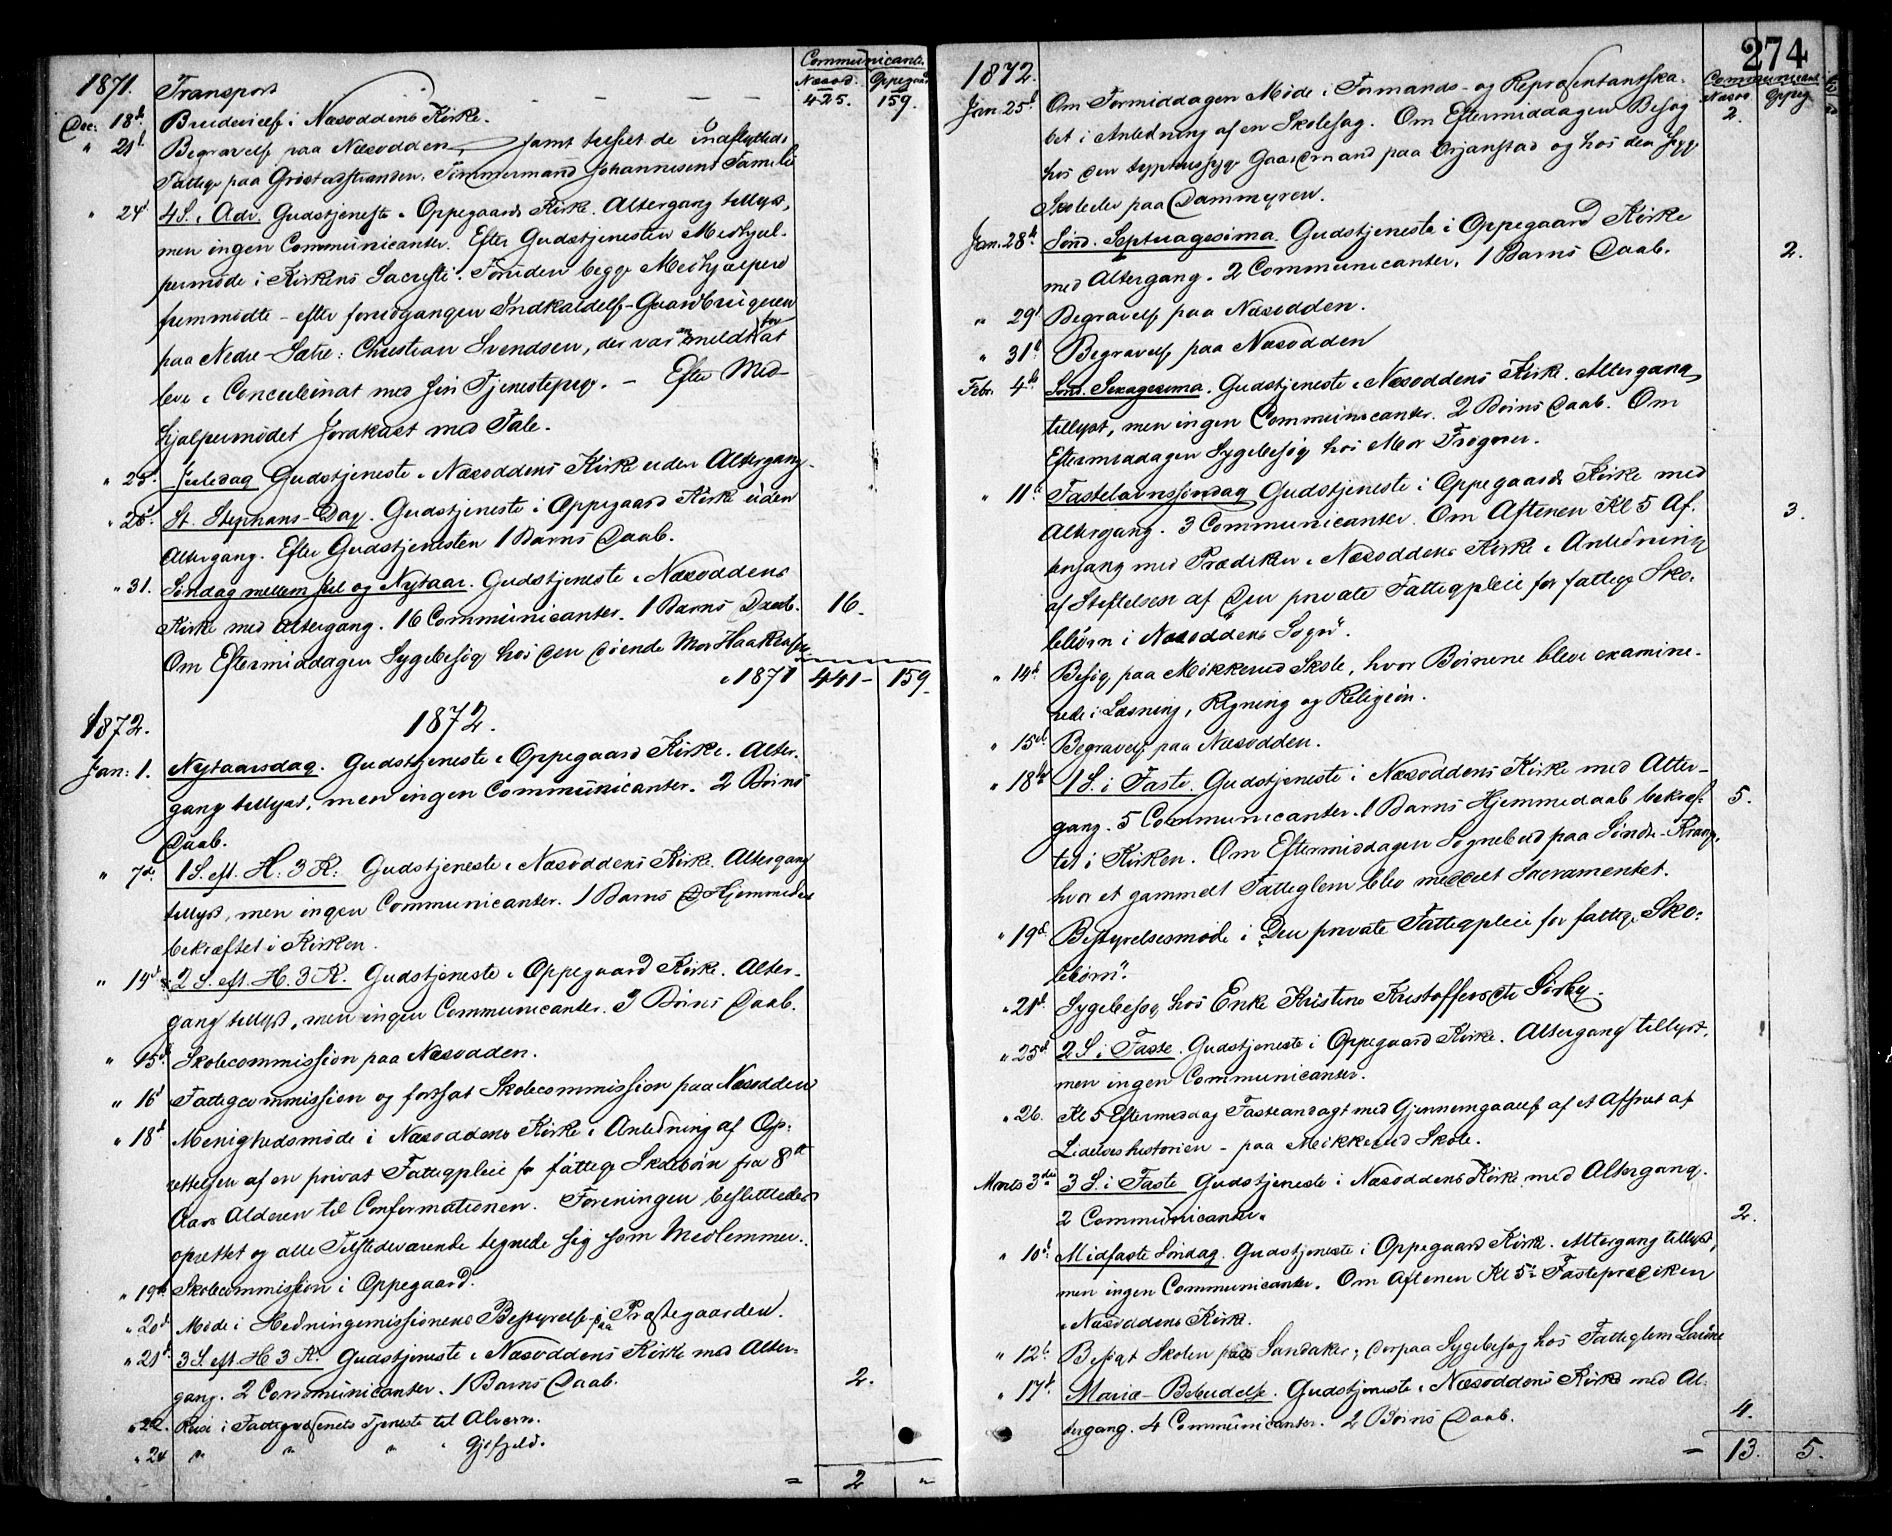 Communicant.
1871. Transport — — — — Næsod. 425. Oppegaard 159.
Dec: 18d. Brudevielse i Næsoddens Kirke.
" 21d. Begravelse paa Næsodden, samt tilseet de indflyttede
Fattige paa Grøstadstranden, Tømmermand Johannesens Familie
" 24d 4 S. i Adv. Gudstjeneste i Oppegaards Kirke. Altergang tillyst,
men ingen Communicanter. Efter Gudstjenesten Medhjæl-
permøde i Kirkens Sacristi. Foruden begge Medhjælpere
fremmødte - efter foregangen Indkaldelse - Gaardbrugeren
paa Nedre-Sætre: Christian Svendsen, der var anmeldt for at
leve i Concubinat med sin Tjenestepige. — Efter Med-
hjælpermødet Jordkast med Tale.
" 25d. Juledag Gudstjeneste i Næsoddens Kirke uden Altergang.
" 26d. St. Stephans-Dag. Gudstjeneste i Oppegaard Kirke uden
Altergang. Efter Gudstjenesten 1 Barns Daab.
" 31. Søndag mellem Jul og Nytaar. Gudstjeneste i Næsoddens
Kirke med Altergang. 16 Communicanter. 1 Barns Daab. 16.
Om Eftermiddagen Sygebesøg hos den døende Mor Haakaasen
i 1871 441 - 159.
1872. 1872.
Jan: 1. Nytaarsdag. Gudstjeneste i Oppegaard Kirke. Alter-
gang tillyst, men ingen Communicanter. 2 Børns
Daab.
" 7de. 1 S. eft. H. 3 K. Gudstjeneste i Næsoddens Kirke. Altergang
tillyst, men ingen Communicanter. 1 Barns Hjemmedaab
bekræftet i Kirken.
" 14d 2 S. eft. H. 3 K. Gudstjeneste i Oppegaard Kirke. Alter-
gang tillyst, men ingen Communicanter. 3 Børns Daab.
" 15d. Skolecommission paa Næsodden.
" 16d Fattigcommission og fortsat Skolecommission paa Næsodden
" 18d Menighedsmøde i Næsoddens Kirke i Anledning af Op-
rettelsen af en privat Fattigpleie for fattige Skolebørn fra 8de
Aars Alderen til Confirmationen. Foreningen besluttedes
oprettet og alle Tilstedeværende tegnede sig som Medlemmer.
" 19d Skolecommission i Oppegaard.
" 20d. Møde i Hedningemissionens Bestyrelse paa Præstegaarden.
" 21d. 3 S. eft. H 3 K. Gudstjeneste i Næsoddens Kirke med Alter-
gang. 2 Communicanter. 1 Barns Daab. 2.
" 22. Reise i Fattigvæsenets Tjeneste til Alværn.
" 24 " " " " Gjøfjeld.
= 2 "
274
Communicant.
1872. Næsod. Oppeg.
Jan. 25d. Om Formiddagen Møde i Formands- og Repræsentantska- 2.
bet i Anledning af en Skolesag. Om Eftermiddagen Besøg
hos den typhussyge Gaardmand paa Ørjanstad og hos den syge
Skoleelev paa Dammyren.
Jan. 28d Sønd. Septuagesima. Gudstjeneste i Oppegaard Kirke
med Altergang. 2 Communicanter. 1 Barns Daab. 2.
" 29d Begravelse paa Næsodden.
" 31d. Begravelse paa Næsodden
Febr. 4de Sønd. Sexagesima. Gudstjeneste i Næsoddens Kirke. Altergang
tillyst, men ingen Communicanter. 2 Børns Daab. Om
Eftermiddagen Sygebesøg hos Mor Frogner.
" 11te Fastelavnssøndag Gudstjeneste i Oppegaards Kirke med
Altergang. 3 Communicanter. Om Aftenen Kl 5 Af- 3.
tensang med Prædiken i Næsoddens Kirke i Anledning
af Stiftelsen af "Den private Fattigpleie for fattige Sko-
lebørn i Næsoddens Sogn".
" 14d Besøg paa Mikkerud Skole, hvor Børnene bleve examine-
rede i Læsning, Regning og Religion.
" 15d. Begravelse paa Næsodden.
" 18de 1 S. i Faste. Gudstjeneste i Næsoddens Kirke med Alter-
gang. 5 Communicanter. 1 Barns Hjemmedaab bekræf- 5.
tet i Kirken. Om Eftermiddagen Sognebud paa Søndre-Krang,
hvor et gammelt Fattiglem blev meddelt Sacramentet.
" 19d. Bestyrelsesmøde i "Den private Fattigpleie for fattige Sko-
lebørn".
" 21d. Sygebesøg hos Enke Kristine Kristoffersdtr Sørby.
" 25d 2 S. i Faste. Gudstjeneste i Oppegaard Kirke. Altergang tillyst,
men ingen Communicanter.
" 26. Kl 5 Eftermiddag Fasteandagt med Gjennemgaaelse af et Afsnit af
Lidelseshistorien - paa Mikkerud Skole.
Marts 3die 3 S. i Faste Gudstjeneste i Næsoddens Kirke med Altergang.
2 Communicanter. 2.
" 10d. Midfaste Søndag. Gudstjeneste i Oppegaard Kirke. Altergang tillyst,
men ingen Communicanter. Om Aftenen Kl 5 Fasteprædiken
i Næsoddens Kirke.
" 12t. Besøgt Skolen paa Sandaker; derpaa Sygebesøg hos Fatteglem
" 17d. Mariæ-Bebudelse. Gudstjeneste i Næsoddens Kirke med Al-
tergang. 4 Communicanter. 2 Børns Daab. 4.
— 13. 5.